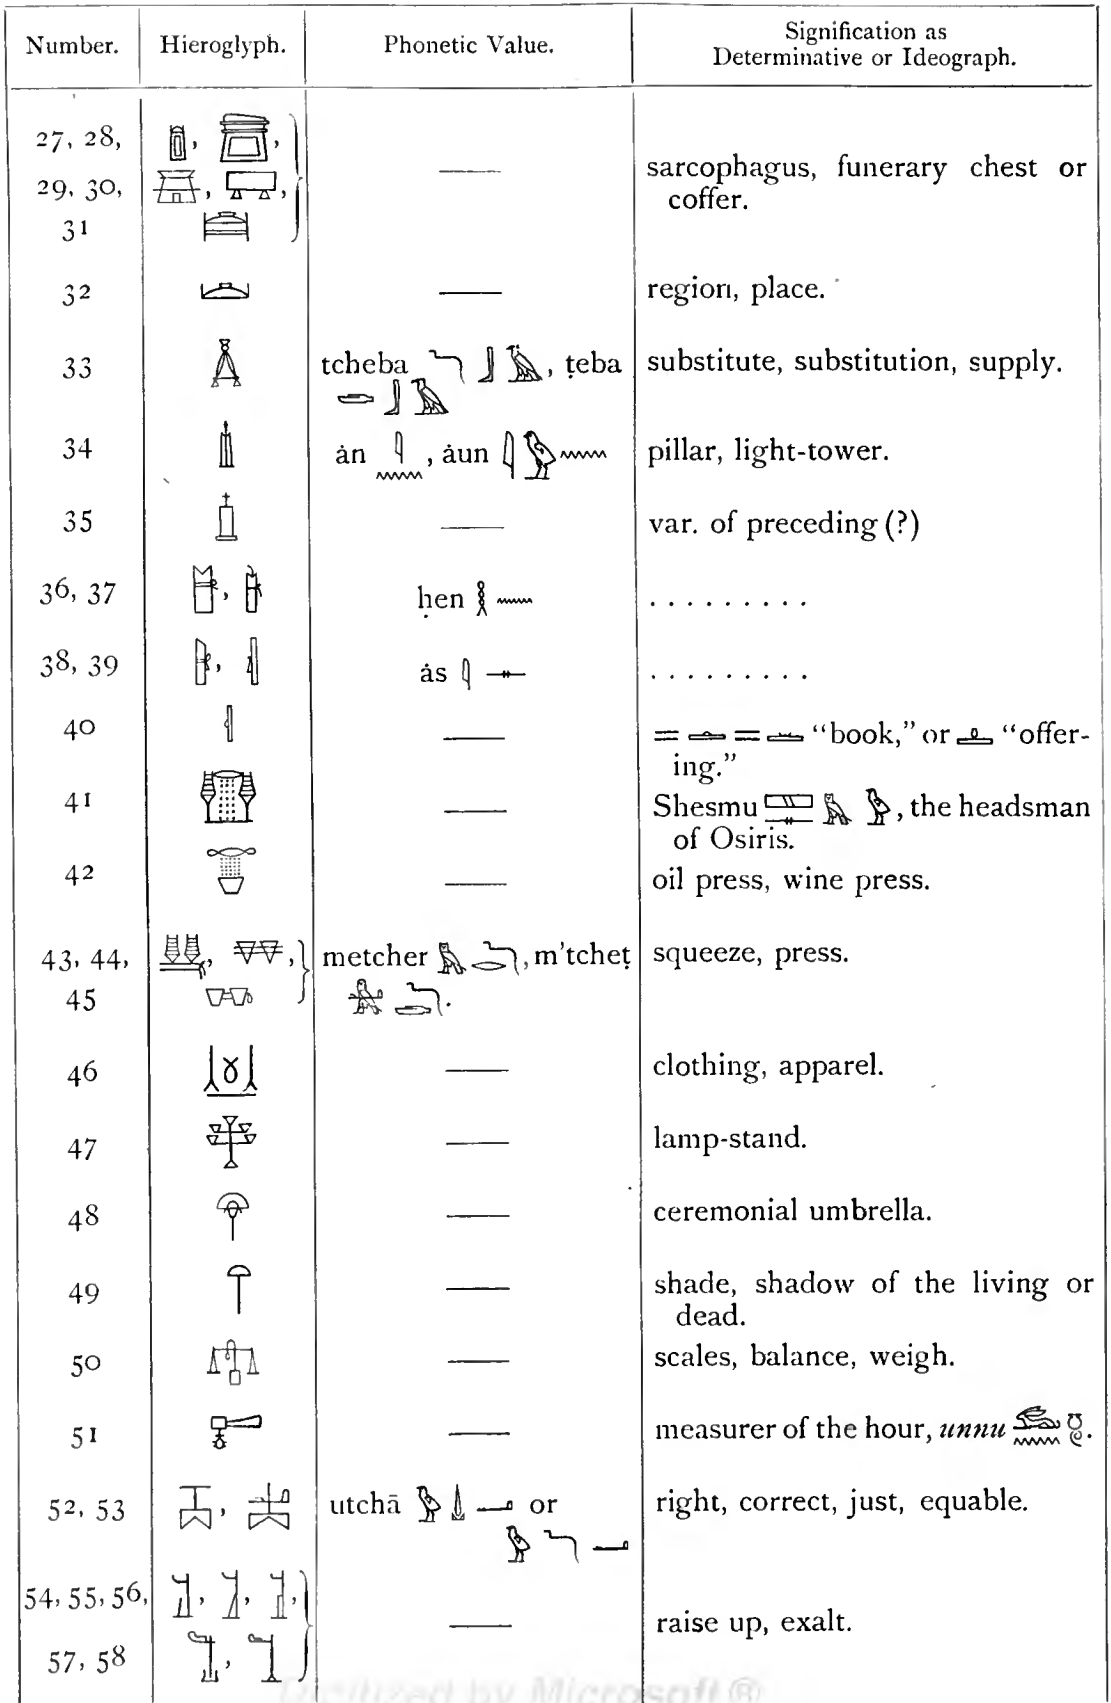 Number. Hieroglyph. Phonetic Value. Signification as
Determinative or Ideograph.
27, 28, 𓊭, , —— sarcophagus, funerary chest or
29, 30, , , coffer.
31
32 —— region, place.
33 tcheba 𓆓𓃀𓄿, ṭeba substitute, substitution, supply.
𓂧𓃀𓄿
34 𓉺 ȧn 𓇋𓈖, ȧun 𓇋𓅱𓈖 pillar, light-tower.
35 —— var. of preceding (?)
36, 37 , ḥen 𓎛𓈖 . . . . . . . . .
38, 39 , ȧs 𓇋𓊃 . . . . . . . . .
40 —— = = “book,” or “offer-
ing.”
41 —— Shesmu 𓈙𓊃𓅓𓅱, the headsman
of Osiris.
42 —— oil press, wine press.
43, 44, , , metcher 𓅓𓆓𓂋, m'tcheṭ squeeze, press.
45 𓆓𓂧.
46 —— clothing, apparel.
47 —— lamp-stand.
48 —— ceremonial umbrella.
49 𓋺 —— shade, shadow of the living or
dead.
50 𓍝 —— scales, balance, weigh.
51 —— measurer of the hour, unnu 𓃹𓈖𓏌.
52, 53 , utchā 𓅱𓍑𓂝 or right, correct, just, equable.
𓅱𓆓𓂝
54, 55, 56, , , , —— raise up, exalt.
57, 58 ,
Digitized by Microsoft ®